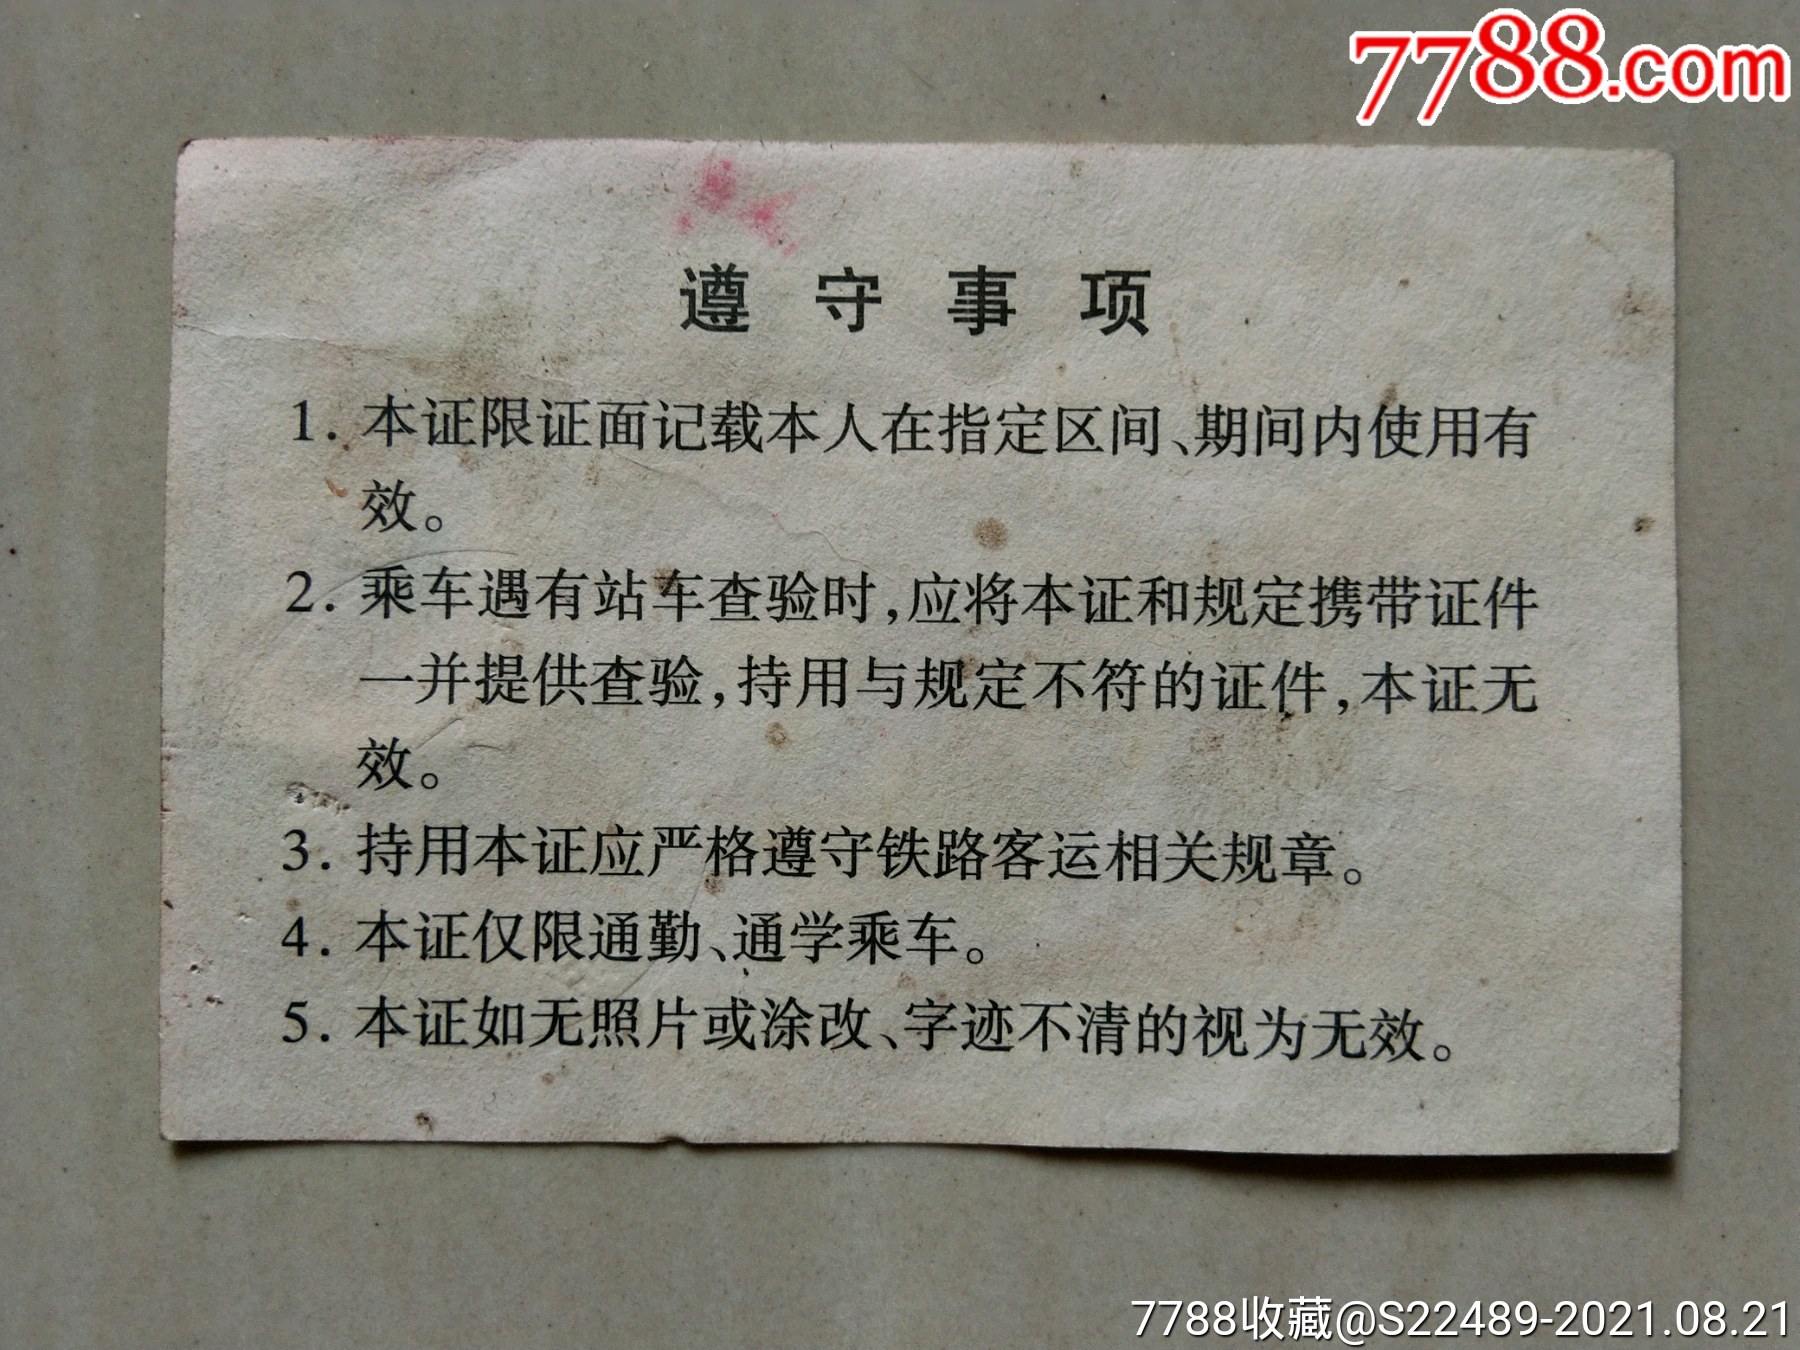 7788.com
遵守事项
1. 本证限证面记载本人在指定区间、期间内使用有
效。
2. 乘车遇有站车查验时,应将本证和规定携带证件
一并提供查验,持用与规定不符的证件,本证无
效。
3. 持用本证应严格遵守铁路客运相关规章。
4. 本证仅限通勤、通学乘车。
5. 本证如无照片或涂改、字迹不清的视为无效。
7788收藏@S22489-2021.08.21